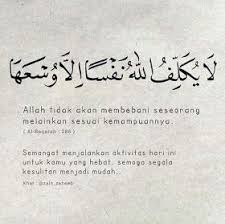 لَا يُكَلِّفُ اللهُ نَفْسًا إِلَّا وُسْعَهَا
Allah tidak akan membebani seseorang
melainkan sesuai kemampuannya.
( Al-Baqarah : 286 )
Semangat menjalankan aktivitas hari ini
untuk kamu yang hebat, semoga segala
kesulitan menjadi mudah..
Khat : @zain_zeneeb